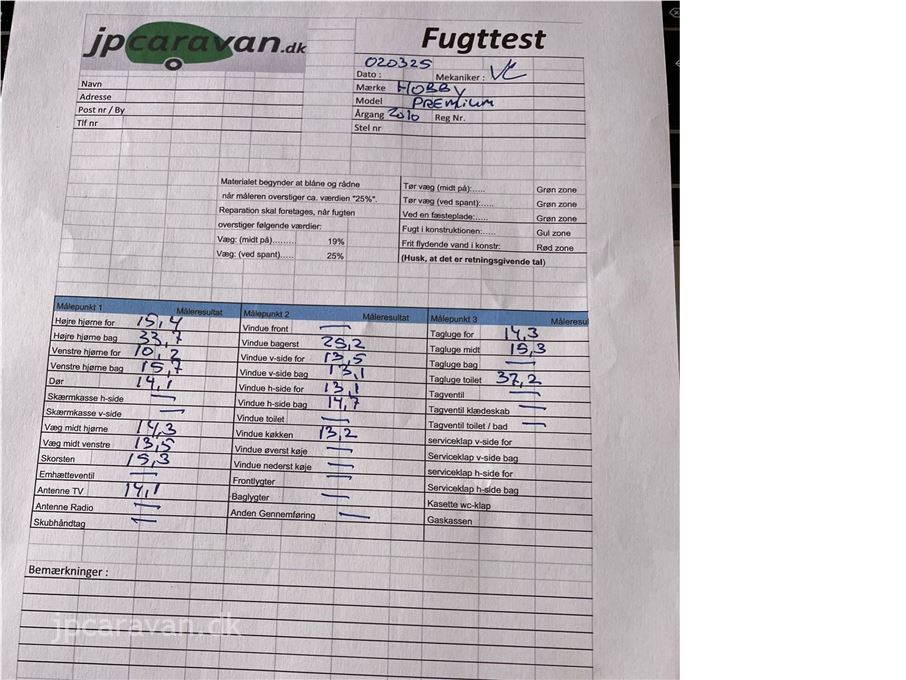 jpcaravan.dk
Fugttest
020325
Dato : Mekaniker :
Navn
Mærke HOBBY
Adresse
Model PREMIUM
Post nr / By
Årgang 2010 Reg Nr.
Tlf nr
Stel nr
Materialet begynder at blåne og rådne
når måleren overstiger ca. værdien "25%".
Reparation skal foretages, når fugten
overstiger følgende værdier:
Væg: (midt på)........ 19%
Væg: (ved spant)..... 25%
Tør væg (midt på):..... Grøn zone
Tør væg (ved spant):..... Grøn zone
Ved en fæsteplade:..... Grøn zone
Fugt i konstruktionen:..... Gul zone
Frit flydende vand i konstr: Rød zone
(Husk, at det er retningsgivende tal)
Målepunkt 1 Måleresultat
Højre hjørne for 15,4
Højre hjørne bag 33,7
Venstre hjørne for 10,2
Venstre hjørne bag 15,7
Dør 14,1
Skærmkasse h-side —
Skærmkasse v-side —
Væg midt højre 14,3
Væg midt venstre 13,5
Skorsten 15,3
Emhætteventil —
Antenne TV 14,1
Antenne Radio —
Skubhåndtag —
Målepunkt 2 Måleresultat
Vindue front —
Vindue bagerst 25,2
Vindue v-side for 13,5
Vindue v-side bag 13,1
Vindue h-side for 13,1
Vindue h-side bag 14,7
Vindue toilet —
Vindue køkken 13,2
Vindue øverst køje —
Vindue nederst køje —
Frontlygter —
Baglygter —
Anden Gennemføring —
Målepunkt 3 Måleresul
Tagluge for 14,3
Tagluge midt 15,3
Tagluge bag —
Tagluge toilet 37,2
Tagventil —
Tagventil klædeskab —
Tagventil toilet / bad —
serviceklap v-side for
Serviceklap v-side bag
serviceklap h-side for
Serviceklap h-side bag
Kasette wc-klap
Gaskassen
Bemærkninger :
jpcaravan.dk